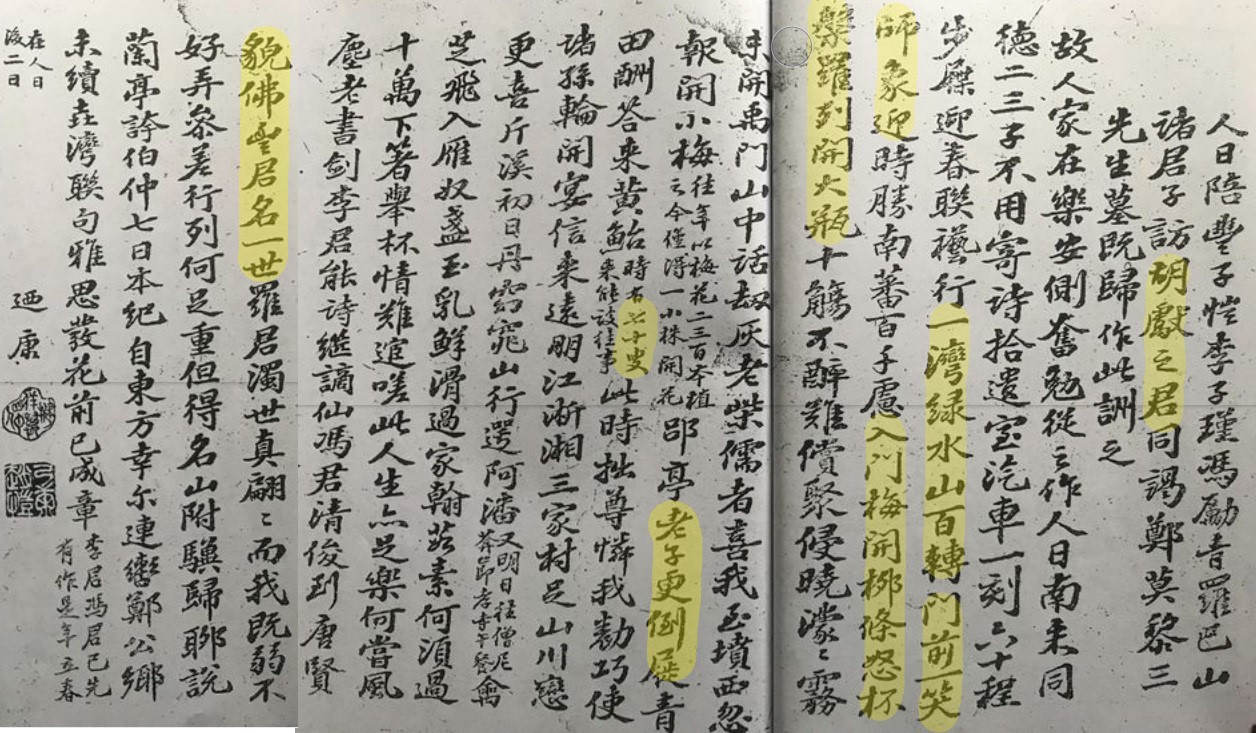 人日陪豐子愷李子瑾馮勵青羅邑山
諸君子訪胡獻之君同謁鄭莫黎三
先生墓既歸作此詶之
故人家在樂安側奮勉從之作人日南来同
德二三子不用寄詩拾遺宝汽車一刻六十程
步屧迎春聯襼行一灣绿水山百轉門前一笑
師象迎時勝南蕃百子慮入門梅開柳條怒杯
槃羅列開大瓶十觴不醉難償聚侵曉濛〻霧
未開禹門山中話劫灰老柴儒者喜我至墳西忽
報開小梅往年以梅花二三百本植之今僅得一小株開花郘亭老子更倒屣青
田酬答来黄鮐時有七十叟来能谈往事此時拙尊憐我勸巧使
诸孫輪開宴信来遠明江浙湘三家村足山川戀
更喜斤溪初日丹窈窕山行遌阿潘又明日往僧尼禽
芝飛入雁奴盞玉乳鮮滑過家翰蔬素何湏過
十萬下箸舉杯情難逭嗟此人生亦足樂何當風
塵老書劍李君能詩继謫仙馮君清俊到唐賢
貌佛豐君名一世羅君濁世真翩〻而我既弱不
好弄參差行列何足重但得名山附驥歸聊説
蘭亭誇伯仲七日本紀自東方幸尔連鑣鄭公鄉
未續垚灣聯句雅思發花前已成章李君馮君已先有作是年立春
在人日後二日
迺康